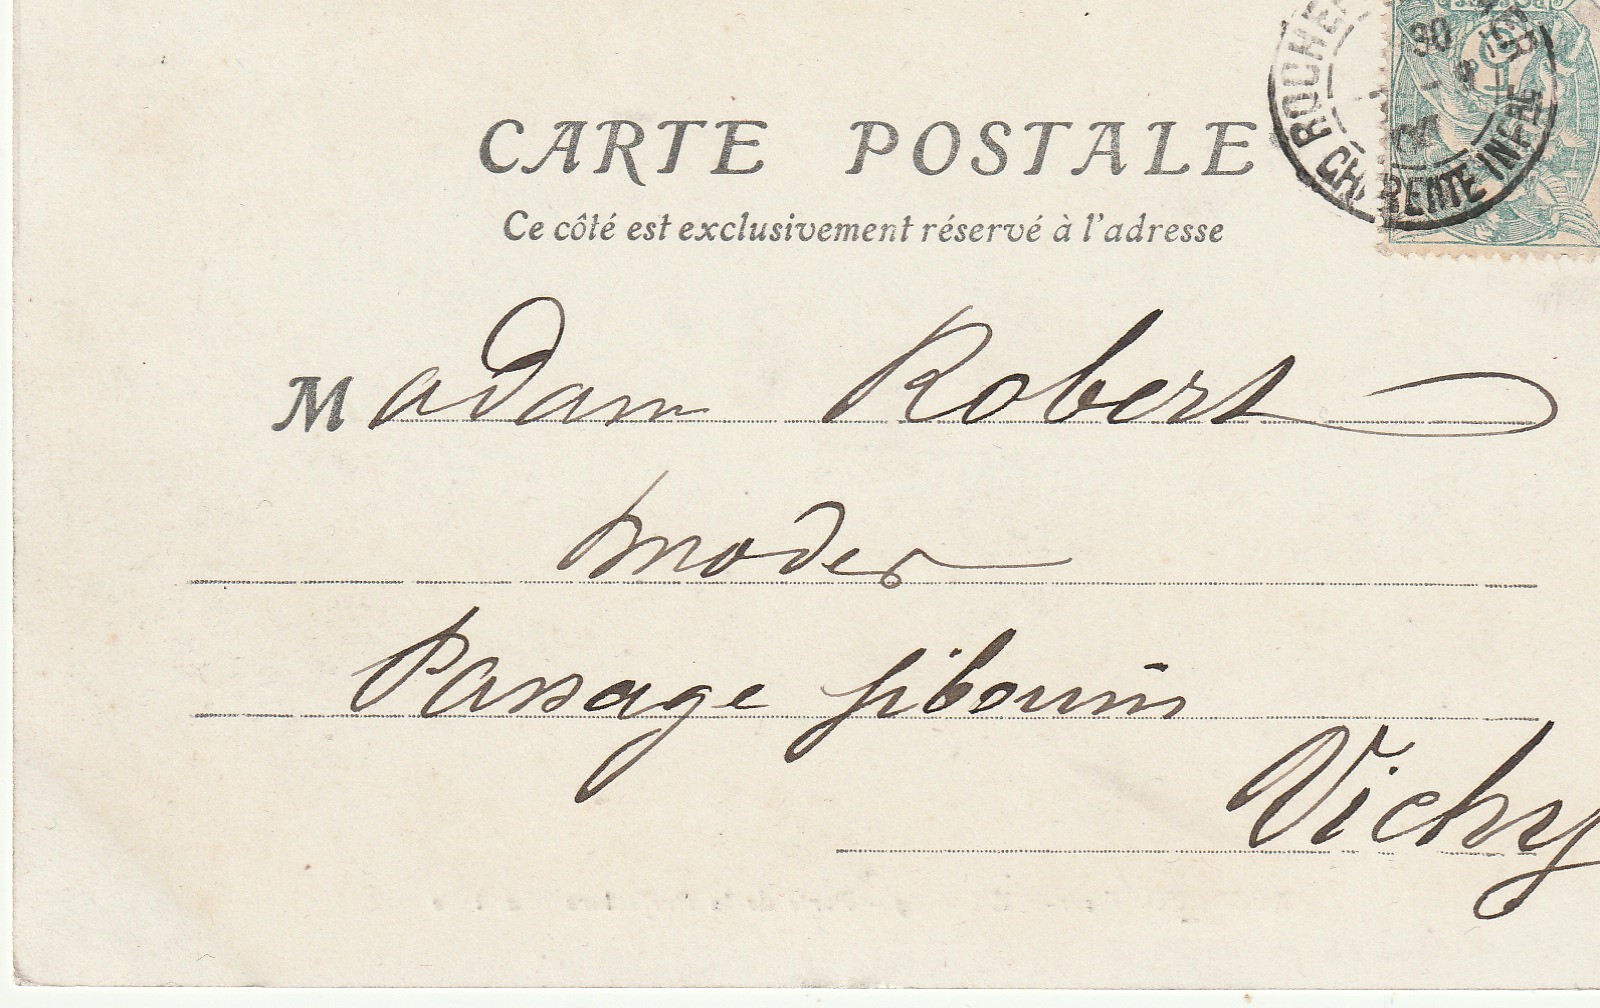 CARTE POSTALE
Ce côté est exclusivement réservé à l'adresse
Madam Robert
modes
Passage
Vichy
CHARENTE INFRE
30